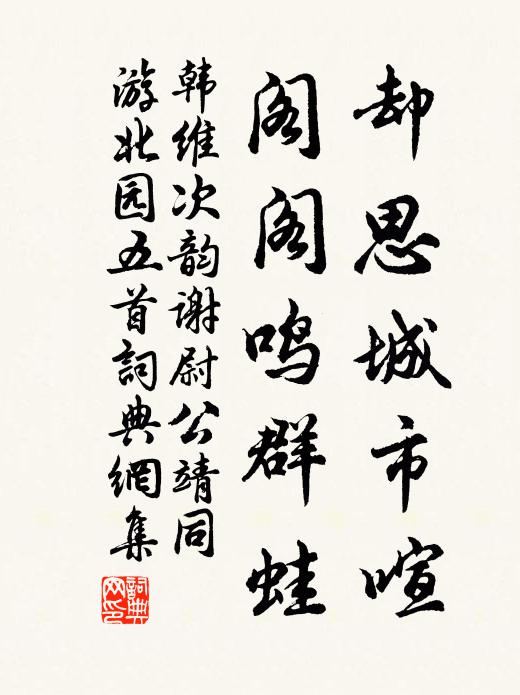 却思城市喧
阁阁鸣群蛙
韩维次韵谢尉公靖同
游北园五首詞典網集
詞典
网印